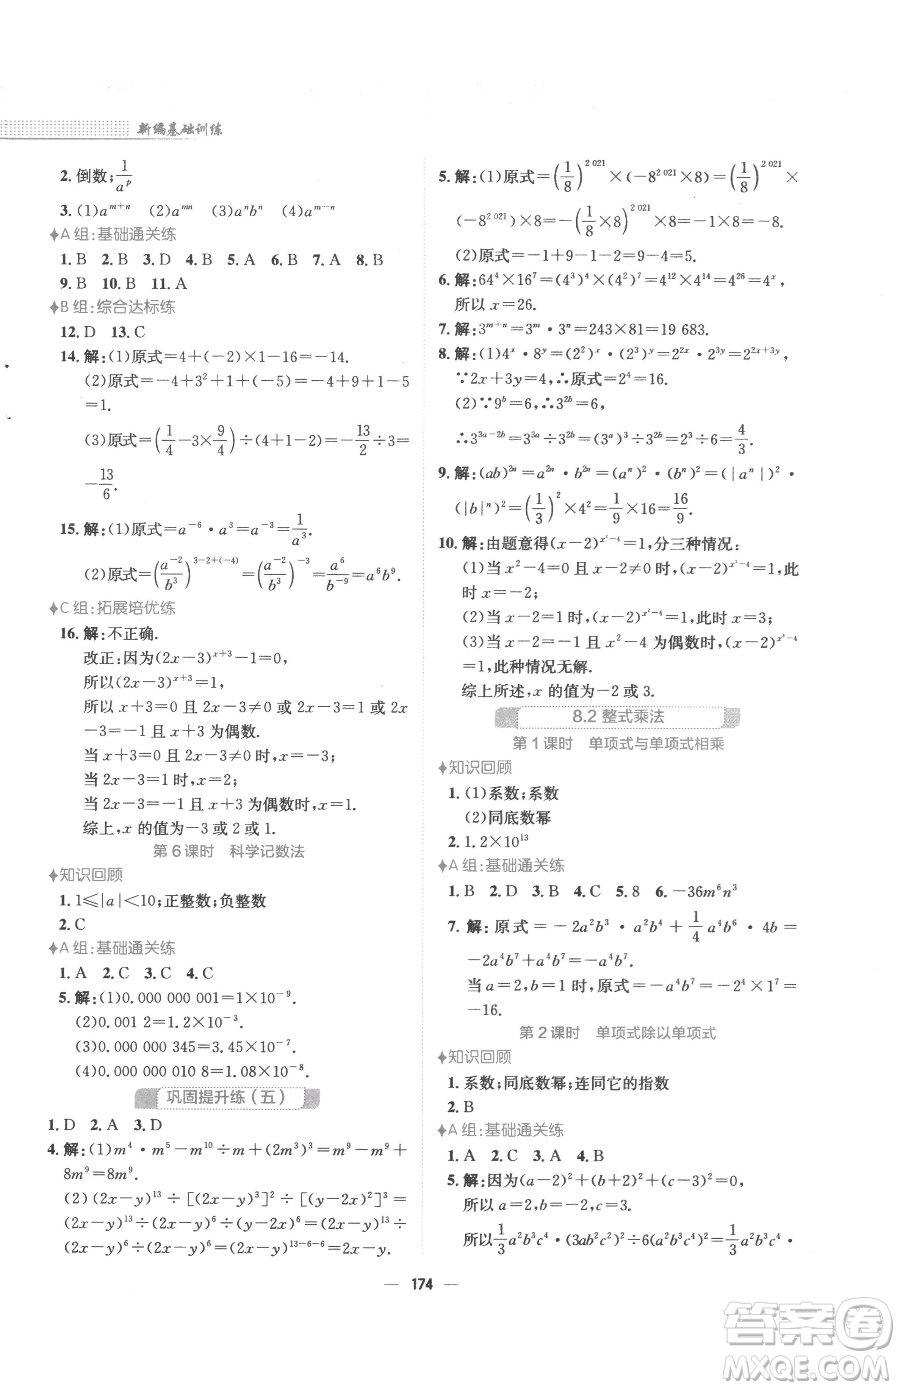 新编基础训练
2. 倒数;1/a^p
3. (1)a^{m+n} (2)a^{mn} (3)a^n b^n (4)a^{m-n}
A 组:基础通关练
1. B 2. B 3. D 4. B 5. A 6. B 7. A 8. B
9. B 10. B 11. A
B 组:综合达标练
12. D 13. C
14. 解:(1)原式=4+(-2)×1-16=-14.
(2)原式=-4+3²+1+(-5)=-4+9+1-5
=1.
(3)原式=(1/4-3×9/4)÷(4-1)=-13/2÷3=
-13/6.
15. 解:(1)原式=a^{-6}·a³=a^{-3}=1/a³.
(2)原式=(a^{-2}/b³)^{3-2+(-4)}=(a^{-2}/b³)^{-3}=a⁶/b^{-9}=a⁶b⁹.
C 组:拓展培优练
16. 解:不正确.
改正:因为(2x-3)^{x+3}-1=0;
所以(2x-3)^{x+3}=1,
所以 x+3=0 且 2x-3≠0 或 2x-3=1 或 2x
-3=-1 且 x+3 为偶数,
当 x+3=0 且 2x-3≠0 时,x=-3;
当 2x-3=1 时,x=2;
当 2x-3=-1 且 x+3 为偶数时,x=1.
综上,x 的值为-3 或 2 或 1.
第 6 课时 科学记数法
知识回顾
1. 1≤|a|<10;正整数;负整数
2. C
A 组:基础通关练
1. A 2. C 3. C 4. C
5. 解:(1)0.000 000 001=1×10^{-9}.
(2)0.001 2=1.2×10^{-3}.
(3)0.000 000 345=3.45×10^{-7}.
(4)0.000 000 010 8=1.08×10^{-8}.
巩固提升练(五)
1. D 2. A 3. D
4. 解:(1)m⁴·m⁵-m¹⁰÷m+(2m³)³=m⁹-m⁹+
8m⁹=8m⁹.
(2)(2x-y)¹³÷[(2x-y)³]²÷[(y-2x)²]³=
(2x-y)¹³÷(2x-y)⁶÷(y-2x)⁶=(2x-y)¹³÷
(2x-y)⁶÷(2x-y)⁶=(2x-y)^{13-6-6}=2x-y.
5. 解:(1)原式=(1/8)^{2 021}×(-8^{2 021}×8)=(1/8)^{2 021}×
(-8^{2 021})×8=-(1/8×8)^{2 021}×8=-1×8=-8.
(2)原式=9-4÷1=9-4=5.
6. 解:64⁴×16⁷=(4³)⁴×(4²)⁷=4¹²×4¹⁴=4²⁶=4^x,
所以 x=26.
7. 解:3^{m+n}=3^m·3^n=243×81=19 683.
8. 解:(1)4^x·8^y=(2²)^x·(2³)^y=2^{2x}·2^{3y}=2^{2x+3y}.
∵2x+3y=4,∴原式=2⁴=16.
(2)∵9^b=6,∴3^{2b}=6,
∴3^{3a-2b}=3^{3a}÷3^{2b}=(3^a)³÷3^{2b}=2³÷6=4/3.
9. 解:(ab)^{2n}=a^{2n}·b^{2n}=(a^n)²·(b^n)²=(|a^n|)²·
(|b|^n)²=(1/3)²×4²=1/9×16=16/9.
10. 解:由题意得(x-2)^{x²-4}=1,分三种情况:
(1)当 x²-4=0 且 x-2≠0 时,(x-2)^{x²-4}=1,此
时 x=-2;
(2)当 x-2=1 时,(x-2)^{x²-4}=1,此时 x=3;
(3)当 x-2=-1 且 x²-4 为偶数时,(x-2)^{x²-4}
=1,此种情况无解.
综上所述,x 的值为-2 或 3.
8.2 整式乘法
第 1 课时 单项式与单项式相乘
知识回顾
1. (1)系数;系数
(2)同底数幂
2. 1.2×10¹³
A 组:基础通关练
1. B 2. D 3. B 4. C 5. 8 6. -36m⁶n³
7. 解:原式=-2a²b³+1/4a⁴b⁶·4b=
-2a⁴b⁷+a⁴b⁷=-a⁴b⁷.
当 a=-2,b=1 时,原式=-a⁴b⁷=-2⁴×1⁷=
-16.
第 2 课时 单项式除以单项式
知识回顾
1. 系数;同底数幂;连同它的指数
2. B
A 组:基础通关练
1. A 2. C 3. A 4. B
5. 解:因为(a-2)²+(b-2)²+(c-3)²=0,
所以 a=2,b=2,c=3.
所以1/3a²b³c⁴·(3ab²c²)²÷6(a²b³c⁴)=1/3a²b³c⁴·
— 174 —
答案卷
MXQE.COM